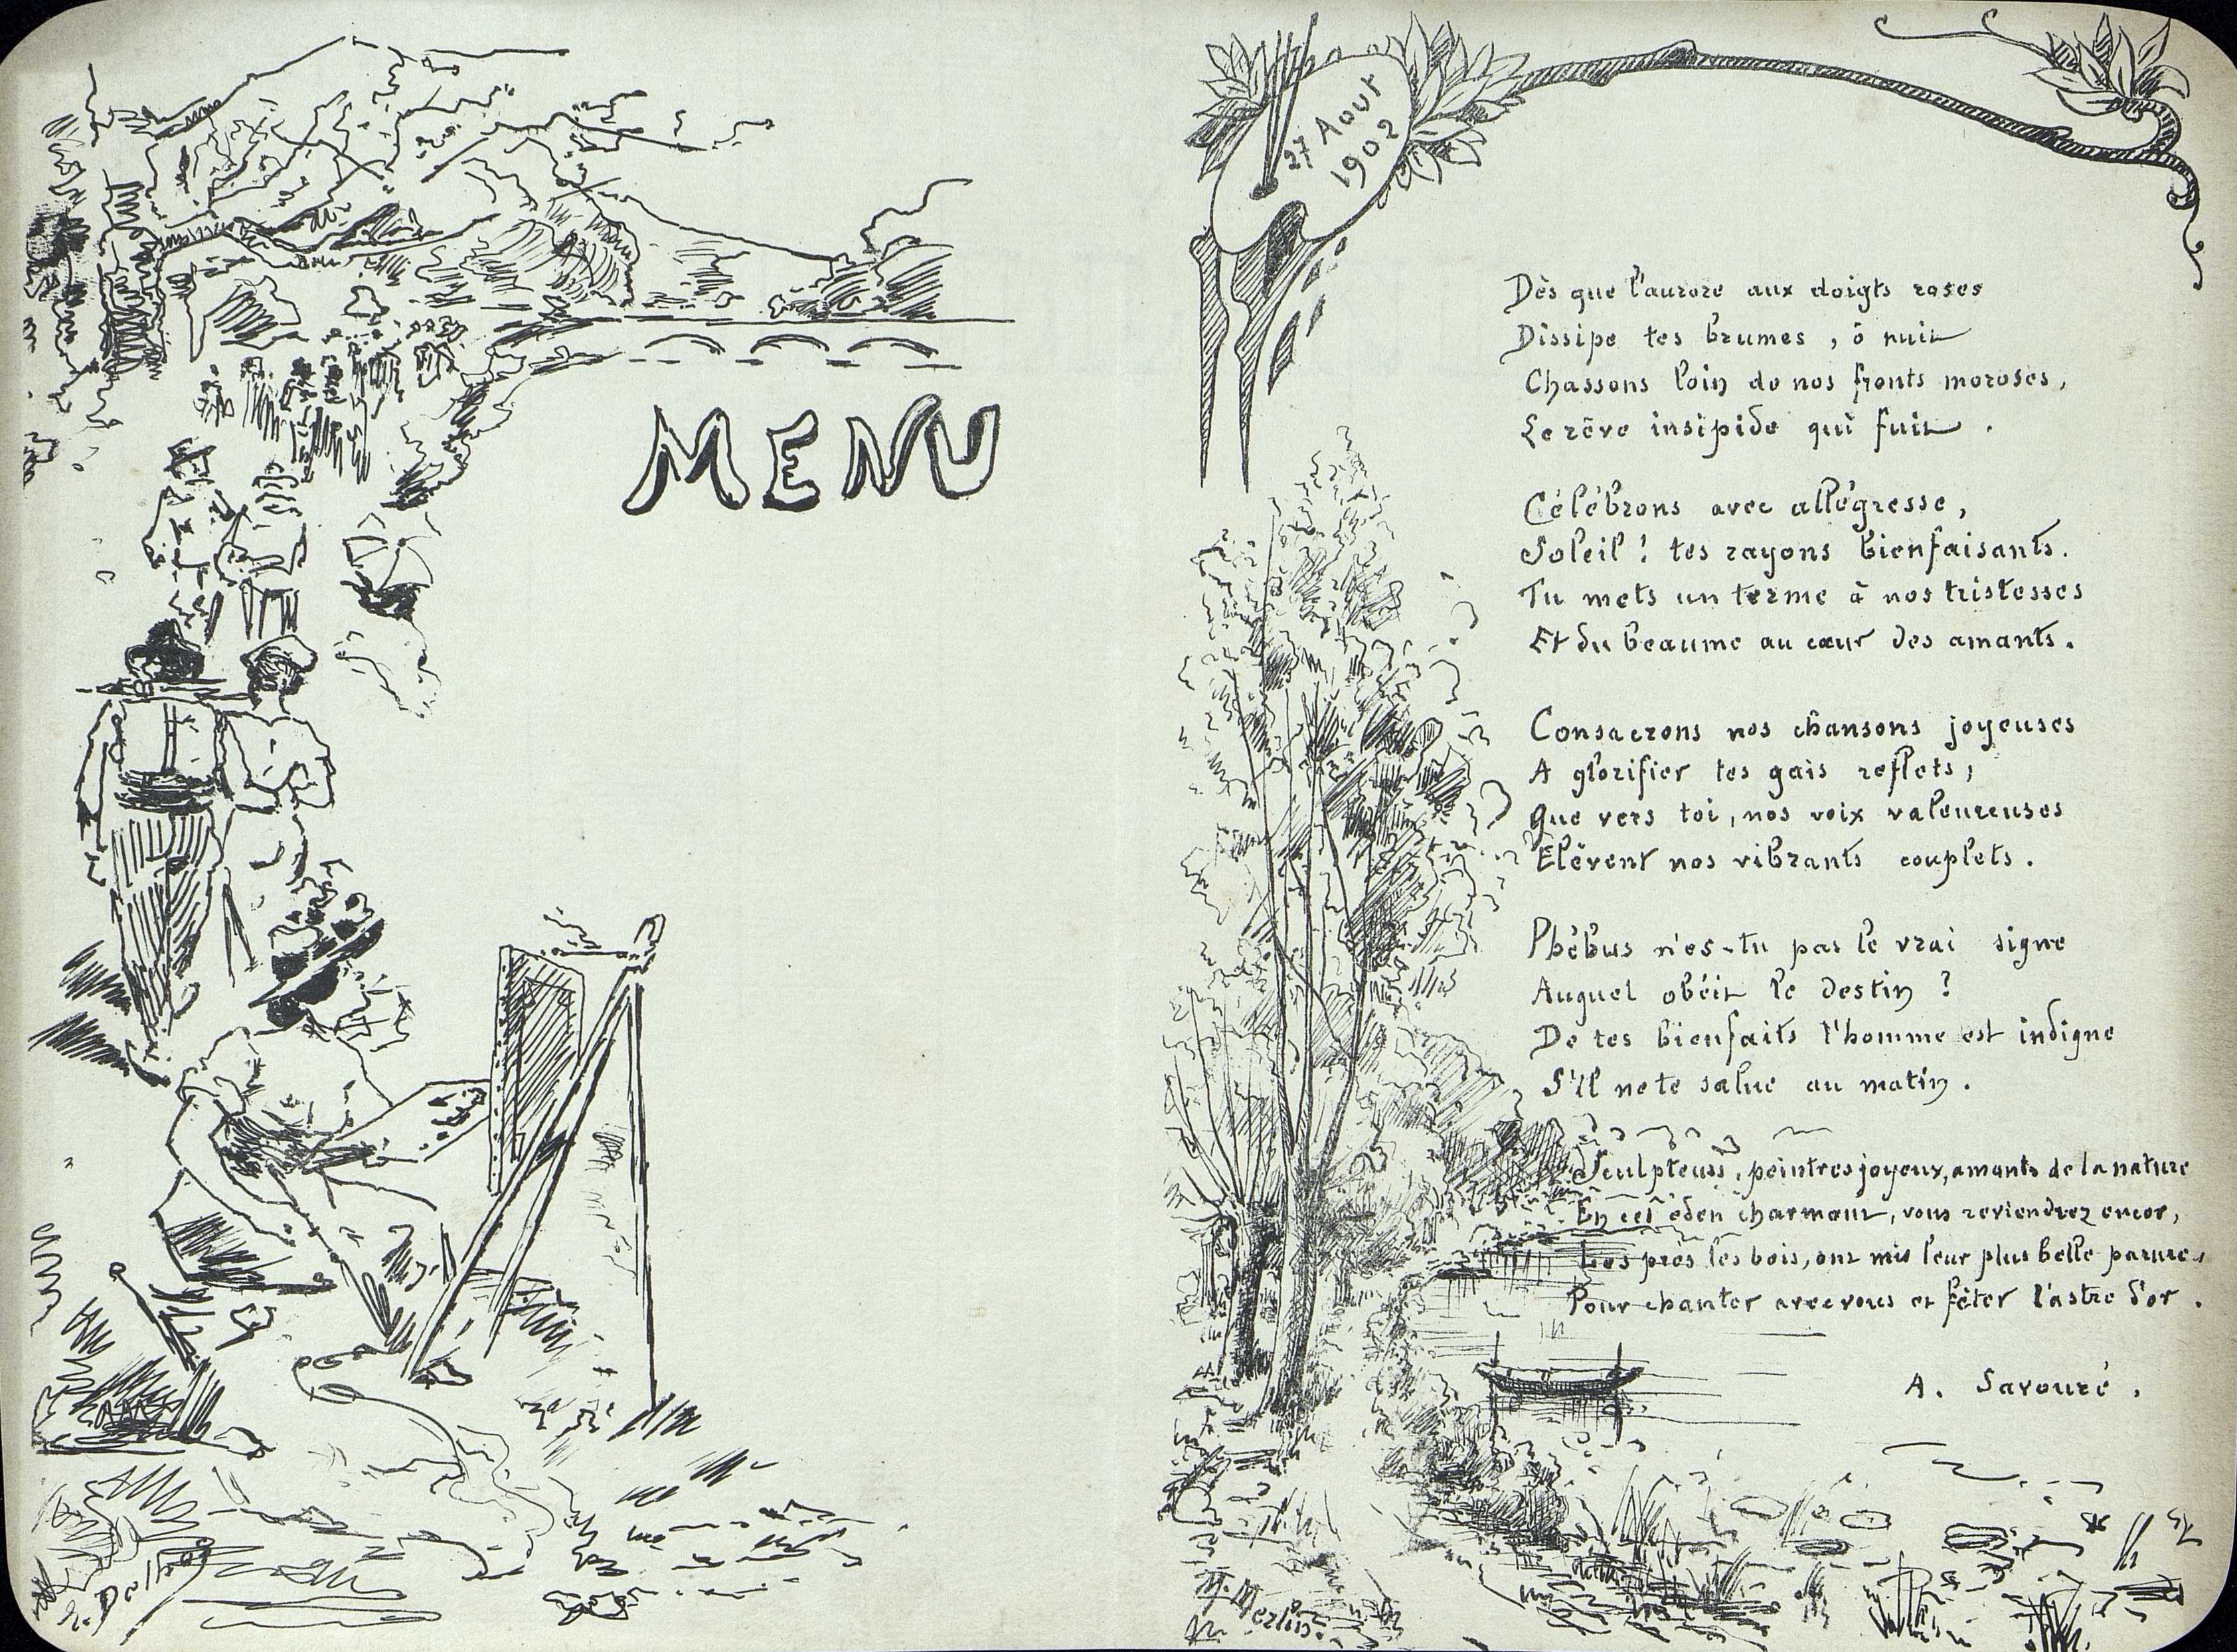 MENU
27 Aout
1902
Dès que l'aurore aux doigts roses
Dissipe tes brumes, ô nuit
Chassons loin de nos fronts moroses,
Le rêve insipide qui fuit.
Célébrons avec allégresse,
Soleil! tes rayons bienfaisants.
Tu mets un terme à nos tristesses
Et du beaume au cœur des amants.
Consacrons nos chansons joyeuses
A glorifier tes gais reflets;
Que vers toi, nos voix valeureuses
Elèvent nos vibrants couplets.
Phébus n'es-tu pas le vrai signe
Auquel obéit le destin?
De tes bienfaits l'homme est indigne
S'il ne te salue au matin.
Sculpteurs, peintres joyeux, amants de la nature
En cet éden charmant, vous reviendrez encor,
Les prés les bois, ont mis leur plus belle parure,
Pour chanter avec vous et fêter l'astre d'or.
A. Savouré.
Merlin